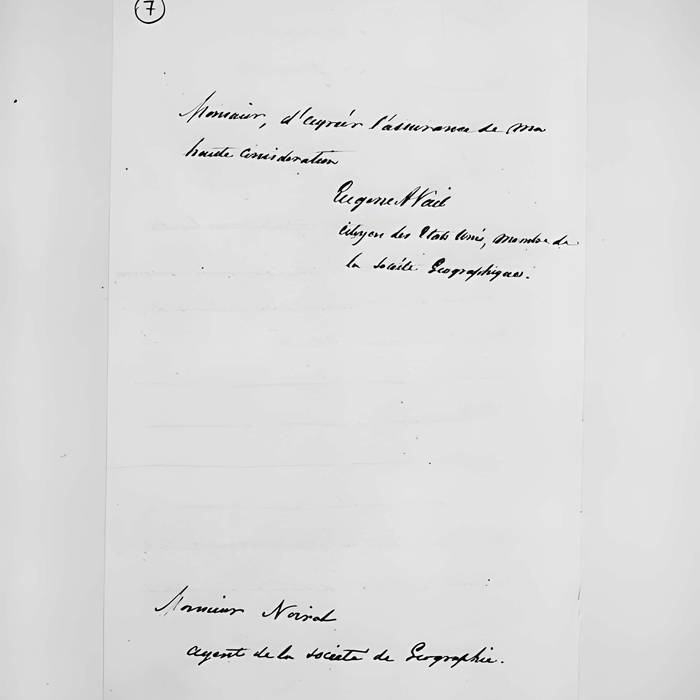 7
Monsieur, d'agréer l'assurance de ma
haute consideration
Eugene A Vail
citoyen des Etats Unis, membre de
la société Geographique.
Monsieur Noirot
agent de la société de Geographie.